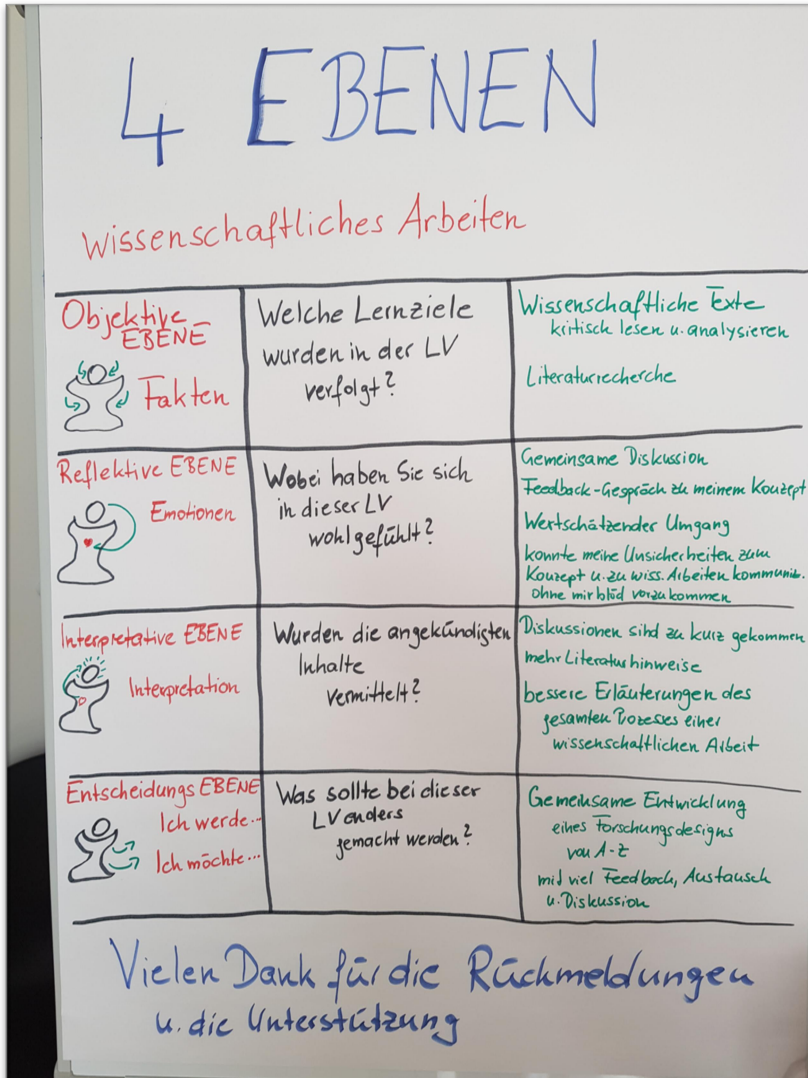 4 EBENEN
Wissenschaftliches Arbeiten
Objektive
EBENE
Fakten
Welche Lernziele
wurden in der LV
verfolgt?
Wissenschaftliche Texte
kritisch lesen u. analysieren
Literaturrecherche
Reflektive EBENE
Emotionen
Wobei haben Sie sich
in dieser LV
wohlgefühlt?
Gemeinsame Diskussion
Feedback-Gespräch zu meinem Konzept
Wertschätzender Umgang
konnte meine Unsicherheiten zum
Konzept u. zu wiss. Arbeiten kommuniz.
ohne mir blöd vorzukommen
Interpretative EBENE
Interpretation
Wurden die angekündigten
Inhalte
vermittelt?
Diskussionen sind zu kurz gekommen
mehr Literaturhinweise
bessere Erläuterungen des
gesamten Prozesses einer
wissenschaftlichen Arbeit
Entscheidungs EBENE
Ich werde...
Ich möchte...
Was sollte bei dieser
LV anders
gemacht werden?
Gemeinsame Entwicklung
eines Forschungsdesigns
von A-Z
mit viel Feedback, Austausch
u. Diskussion
Vielen Dank für die Rückmeldungen
u. die Unterstützung